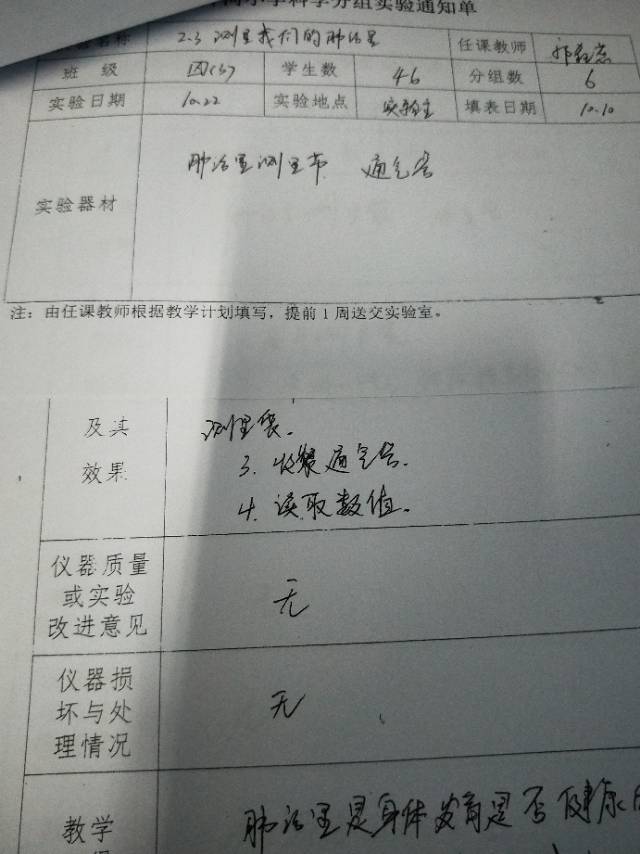 小学科学分组实验通知单
名称 2.3 测量我们的肺活量 任课教师
班 级 四(3) 学生数 46 分组数 6
实验日期 10.22 实验地点 实验室 填表日期 10.10
实验器材 肺活量测量带 通气管
注：由任课教师根据教学计划填写，提前1周送交实验室。
及其 测量袋.
效果 3. 收紧通气管.
4. 读取数值.
仪器质量
或实验
改进意见 无
仪器损
坏与处
理情况 无
教学 肺活量是身体发育是否健康